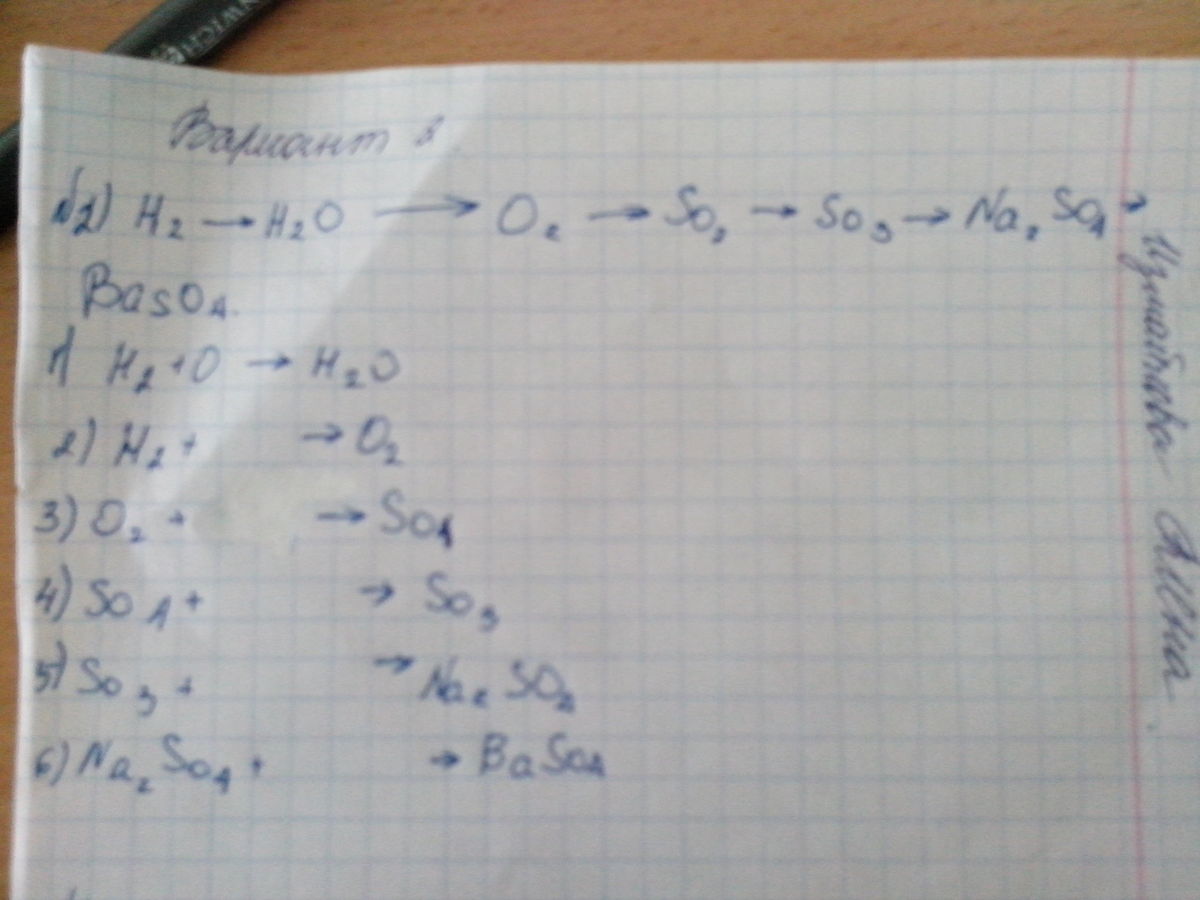 Вариант 8
№2) H₂ → H₂O → O₂ → SO₂ → SO₃ → Na₂SO₄ →
BaSO₄.
1) H₂ + O → H₂O
2) H₂ + → O₂
3) O₂ + → SO₄
4) SO₄ + → SO₃
5) SO₃ + → Na₂SO₂
6) Na₂SO₄ + → BaSO₄
Алена